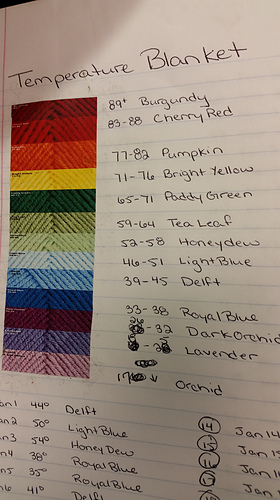 Temperature Blanket
89+ Burgundy
83-88 Cherry Red
77-82 Pumpkin
71-76 Bright Yellow
65-71 Paddy Green
59-64 Tea Leaf
52-58 Honeydew
46-51 Light Blue
39-45 Delft
33-38 Royal Blue
26-32 Dark Orchid
Lavender
Orchid
an1 44° Delft
an2 50° Light Blue
an3 54° Honey Dew
n4 38° Royal Blue
n5 35° Royal Blue
n6 41° Delft
14 Jan 14
15 Jan 15
Jan
Jan